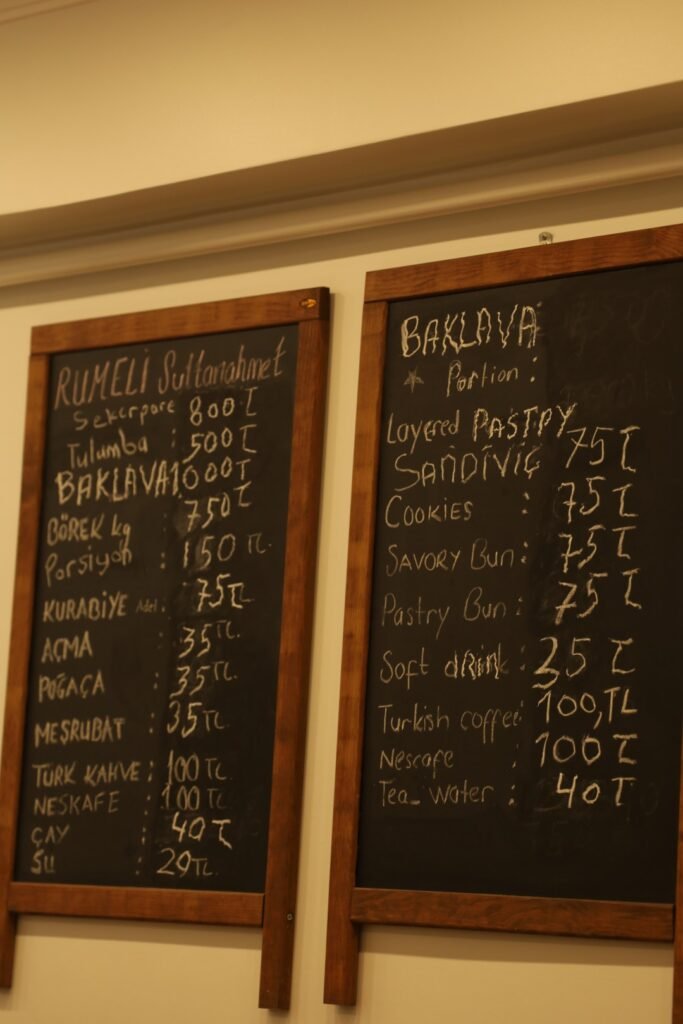 RUMELİ Sultanahmet
Sekerpare 800 T
Tulumba : 500 T
BAKLAVA 1000 T
BÖREK kg 750 T
Porsiyon : 150 TL.
KURABİYE Adet : 75 TL
AÇMA : 35 TL.
POĞAÇA : 35 TL.
MEŞRUBAT : 35 TL.
TÜRK KAHVE : 100 TL.
NESKAFE : 100 TL.
ÇAY : 40 T
SU : 20 TL.
BAKLAVA
Portion :
Layered PASTRY 75 T
SANDİVİÇ
COOKIES : 75 T
SAVORY Bun : 75 T
Pastry Bun : 75 T
Soft dRİNK : 25 T
Turkish coffee : 100,TL
Nescafe : 100 T
Tea_ Water : 40 T